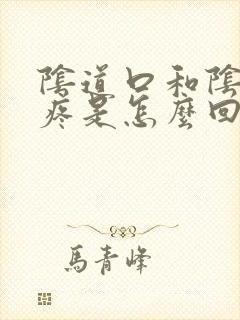 陰道口和陰
疼是怎麼回
馬青峰